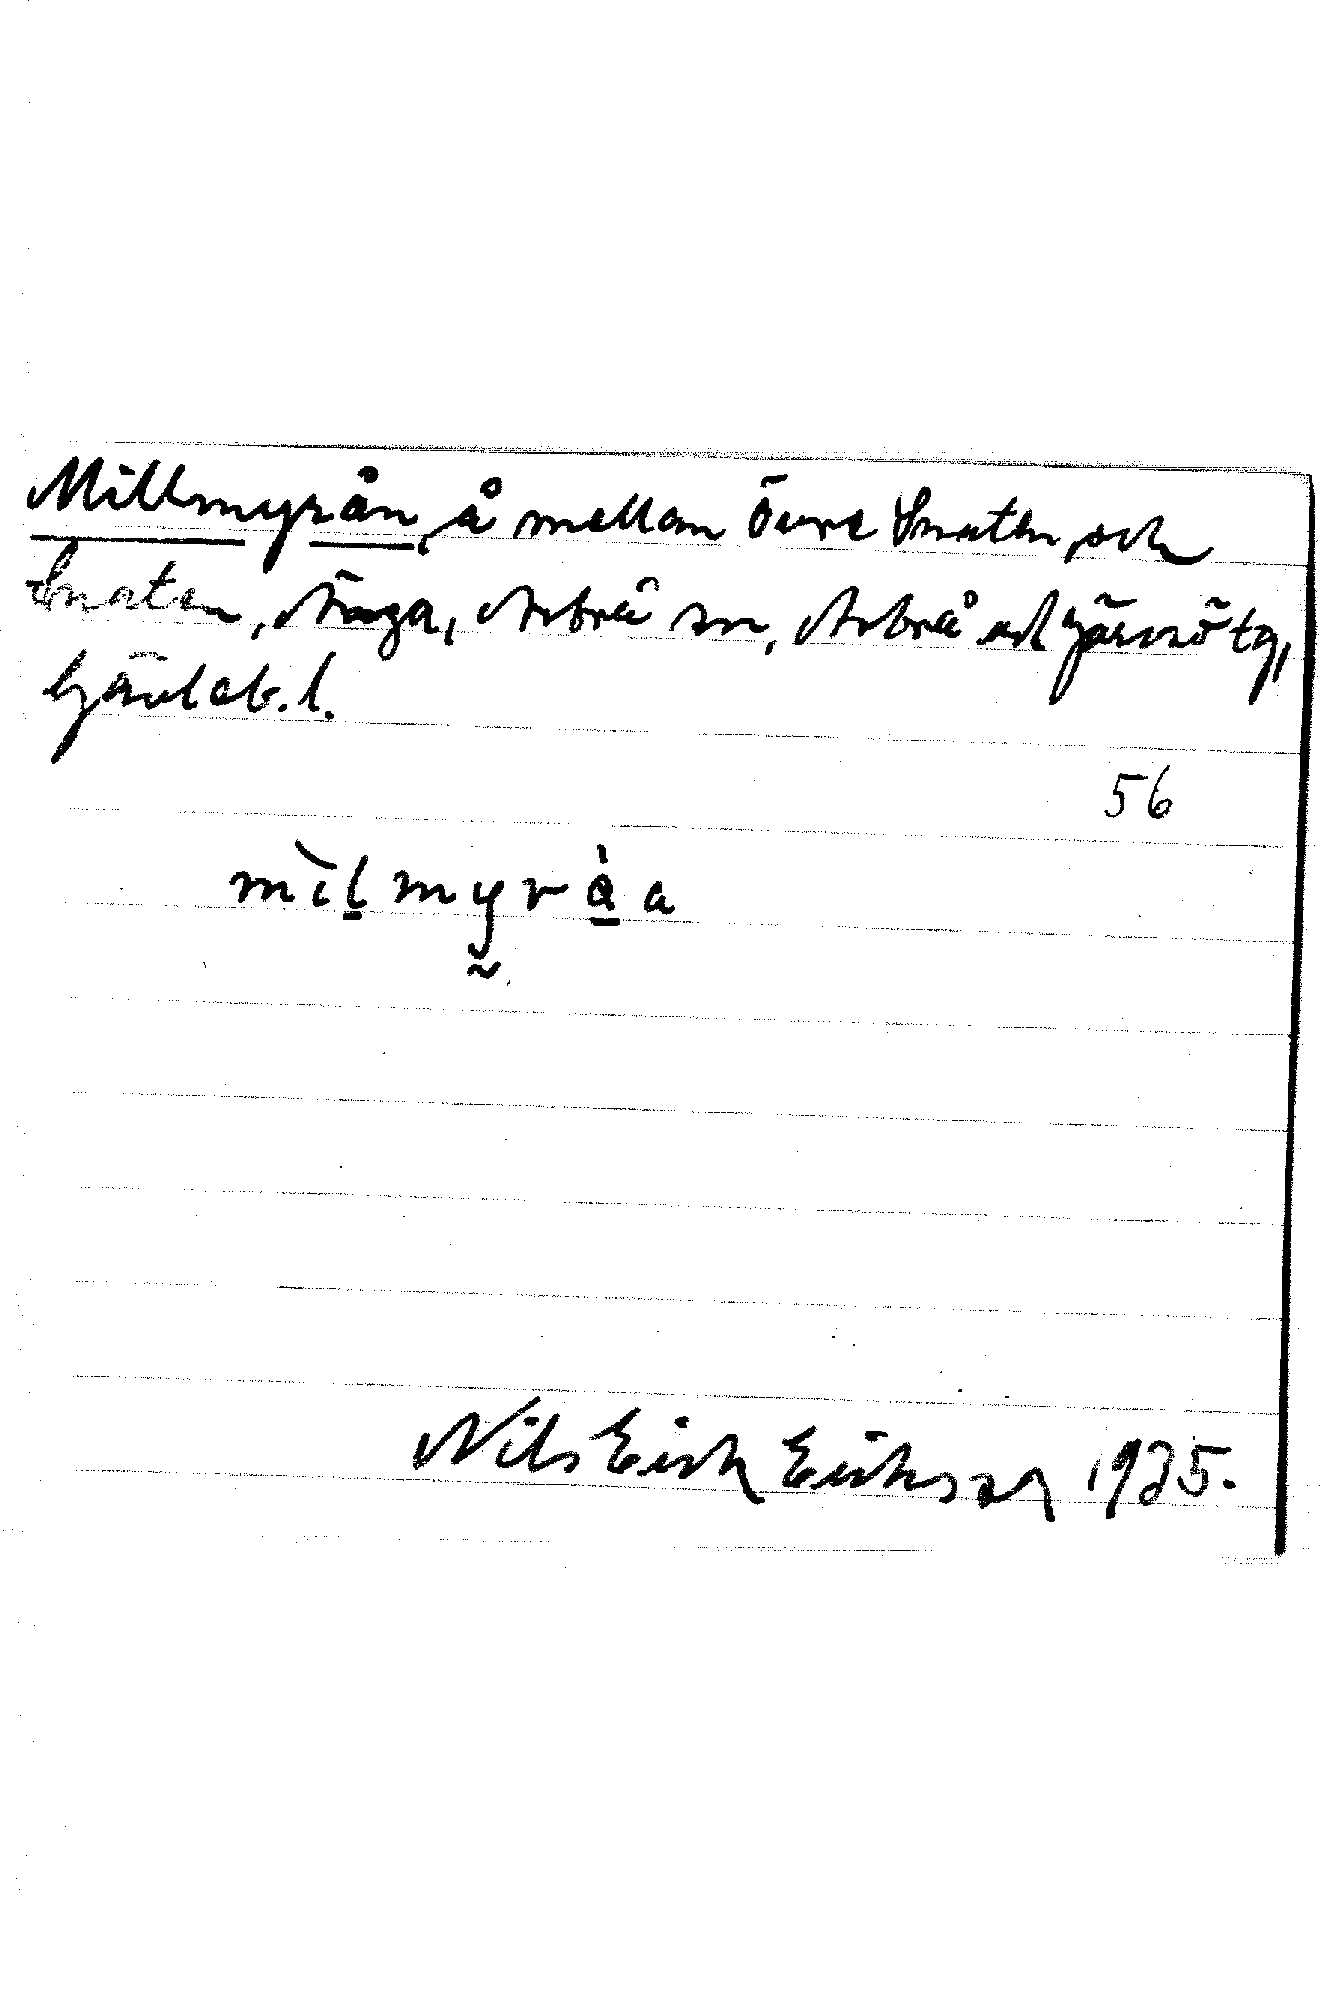 Millmyrån, å mellan Övre Snaten och
Snaten, Änga, Arbrå sn, Arbrå och Järvsö tg,
Gävleb. l.
56
mìlmyràa
Nils Erik Eriksson 1935.